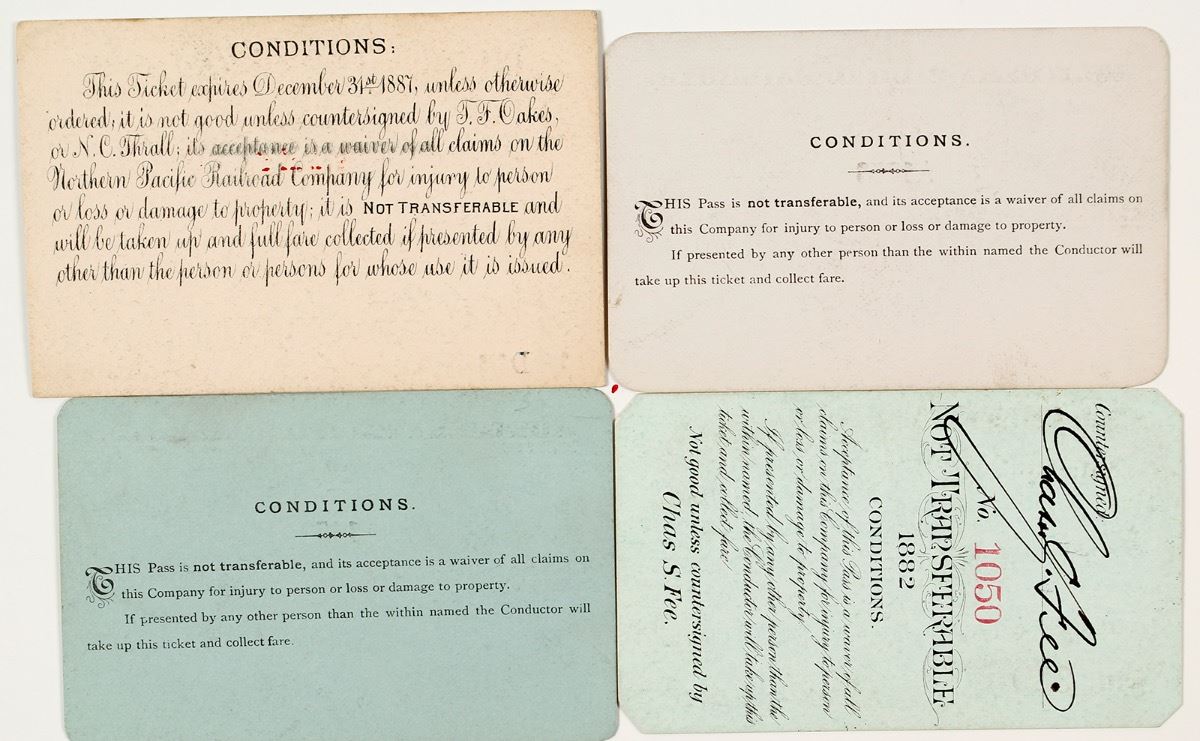 CONDITIONS:
This Ticket expires December 31st 1887, unless otherwise
ordered; it is not good unless countersigned by T. F. Oakes,
or N. C. Thrall; its acceptance is a waiver of all claims on the
Northern Pacific Railroad Company for injury to person
or loss or damage to property; it is NOT TRANSFERABLE and
will be taken up and full fare collected if presented by any
other than the person or persons for whose use it is issued.
CONDITIONS.
THIS Pass is not transferable, and its acceptance is a waiver of all claims on
this Company for injury to person or loss or damage to property.
If presented by any other person than the within named the Conductor will
take up this ticket and collect fare.
CONDITIONS.
THIS Pass is not transferable, and its acceptance is a waiver of all claims on
this Company for injury to person or loss or damage to property.
If presented by any other person than the within named the Conductor will
take up this ticket and collect fare.
Countersigned
Chas. S. Fee
No. 1050
NOT TRANSFERABLE
1882
CONDITIONS.
Acceptance of this Pass is a waiver of all
claims on this Company for injury to person
or loss or damage to property
If presented by any other person than the
within named, the Conductor will take up this
ticket and collect fare
Not good unless countersigned by
Chas S. Fee.